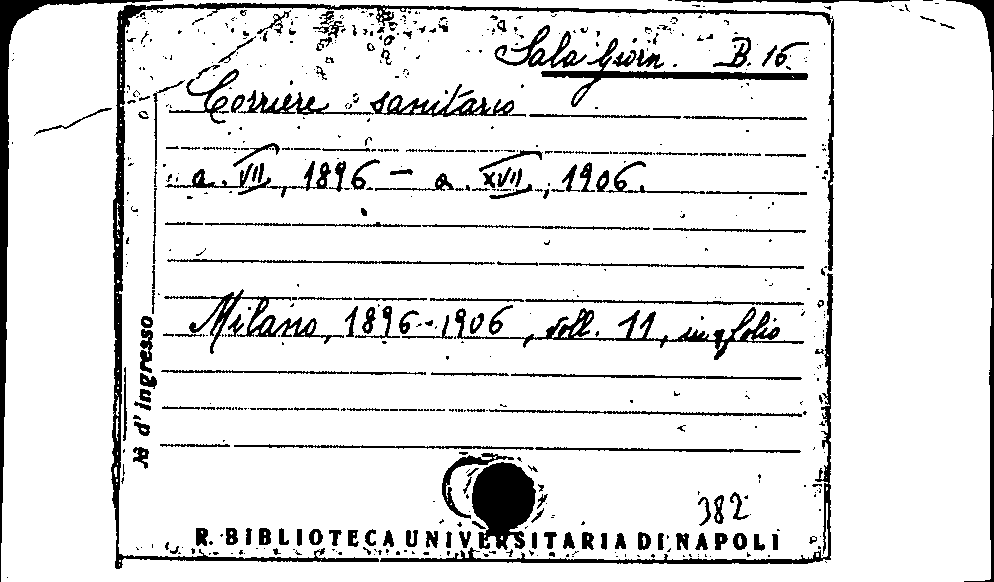 Sala Giorn. B. 16
Corriere sanitario
a. VII, 1896 - a. XVII, 1906.
Milano, 1896-1906, voll. 11, in folio
№ d'ingresso
382
R. BIBLIOTECA UNIVERSITARIA DI NAPOLI